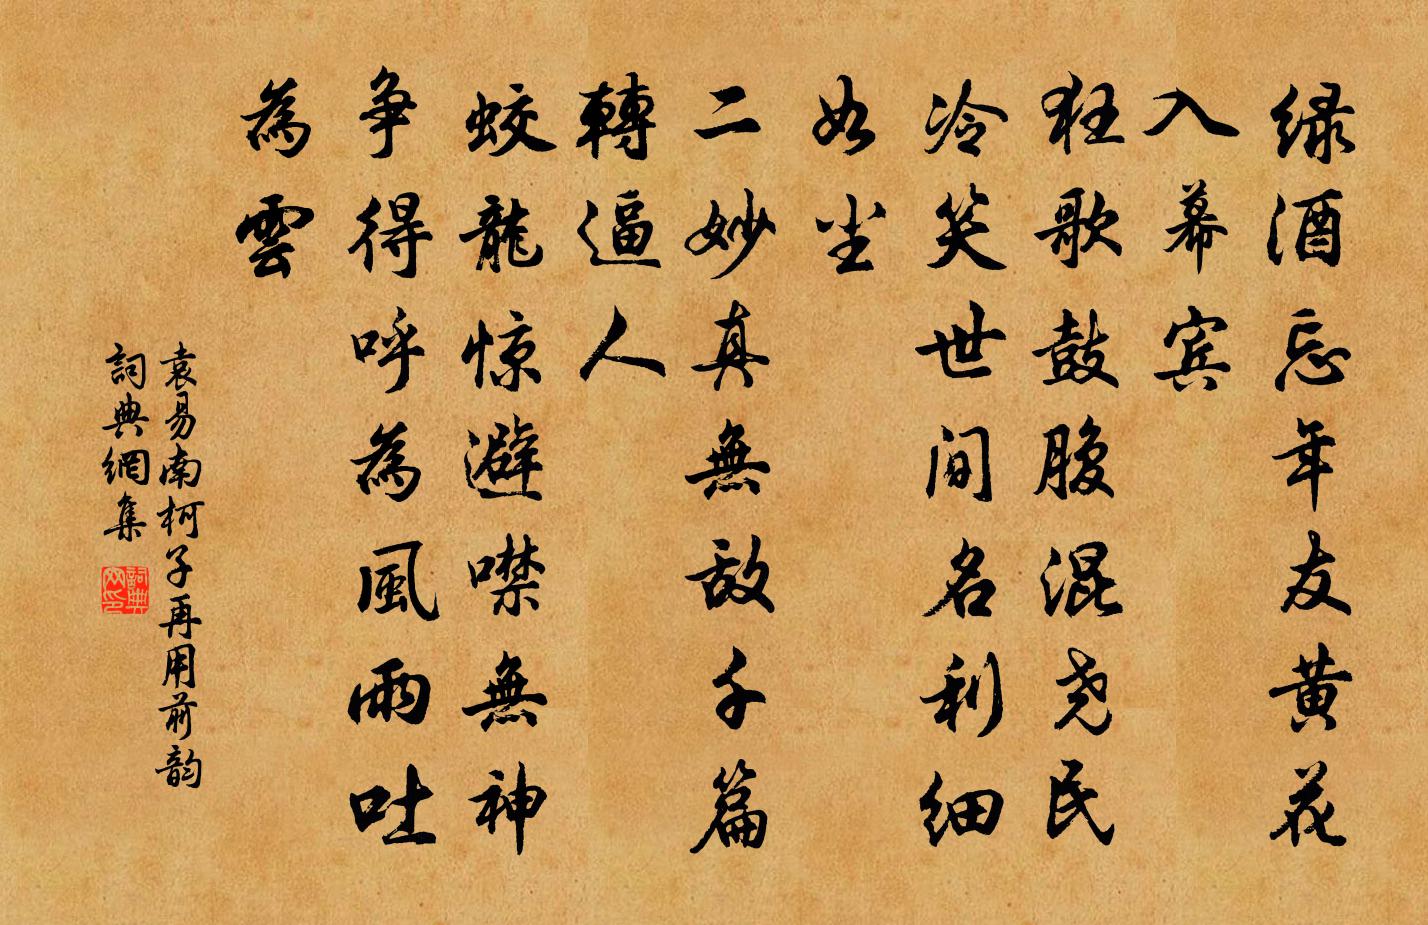 绿酒忘年友黄花
入幕宾
狂歌鼓腹混尧民
冷笑世间名利细
如尘
二妙真無敌千篇
轉逼人
蛟龍惊避噤無神
争得呼為風雨吐
為雲
袁易南柯子再用前韵
詞典網集
詞典网印